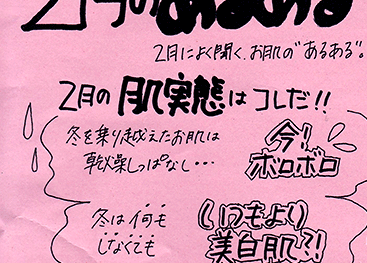 2月のあるある
2月によく聞く、お肌の"あるある"。
2月の肌実態はコレだ!!
冬を乗り越えたお肌は
乾燥しっぱなし…
今!
ボロボロ
冬は何も
しなくても
いつもより
美白肌?!